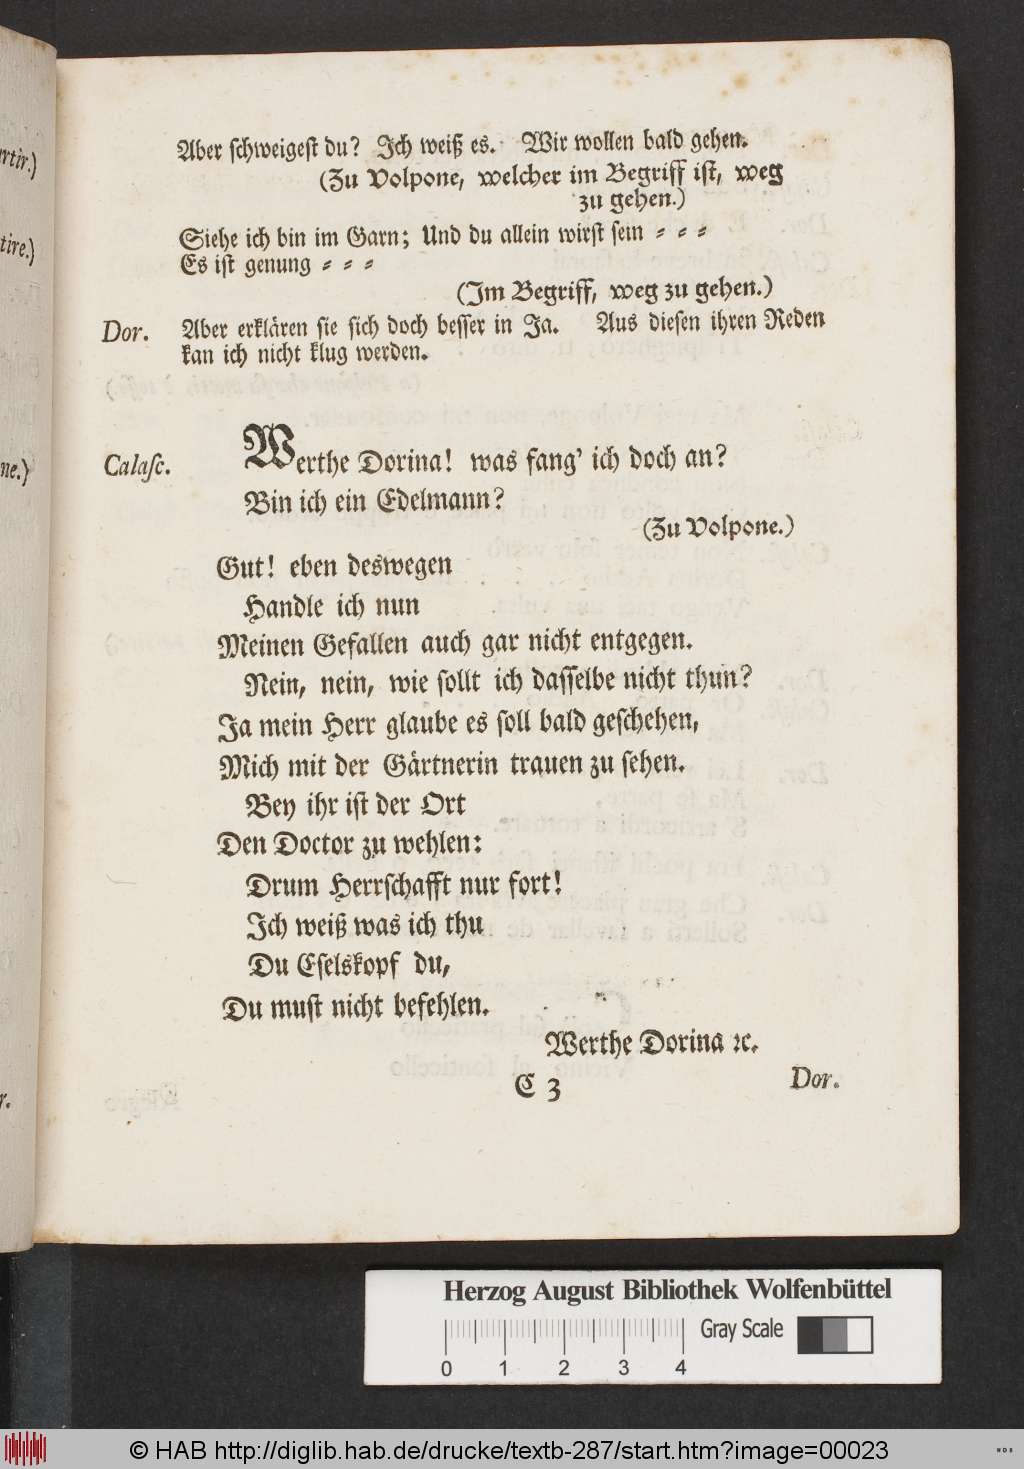 Aber schweigest du? Ich weiß es. Wir wollen bald gehen.
(Zu Volpone, welcher im Begriff ist, weg
zu gehen.)
Siehe ich bin im Garn; Und du allein wirst sein = = =
Es ist genung = = =
(Im Begriff, weg zu gehen.)
Dor. Aber erklären sie sich doch besser in Ja. Aus diesen ihren Reden
kan ich nicht klug werden.
Calasc. Werthe Dorina! was fang' ich doch an?
Bin ich ein Edelmann?
(Zu Volpone.)
Gut! eben deswegen
Handle ich nun
Meinen Gefallen auch gar nicht entgegen.
Nein, nein, wie sollt ich dasselbe nicht thun?
Ja mein Herr glaube es soll bald geschehen,
Mich mit der Gärtnerin trauen zu sehen.
Bey ihr ist der Ort
Den Doctor zu wehlen:
Drum Herrschafft nur fort!
Ich weiß was ich thu
Du Eselskopf du,
Du must nicht befehlen.
Werthe Dorina ꝛc.
C 3
Dor.
Herzog August Bibliothek Wolfenbüttel
0 1 2 3 4
Gray Scale
© HAB http://diglib.hab.de/drucke/textb-287/start.htm?image=00023